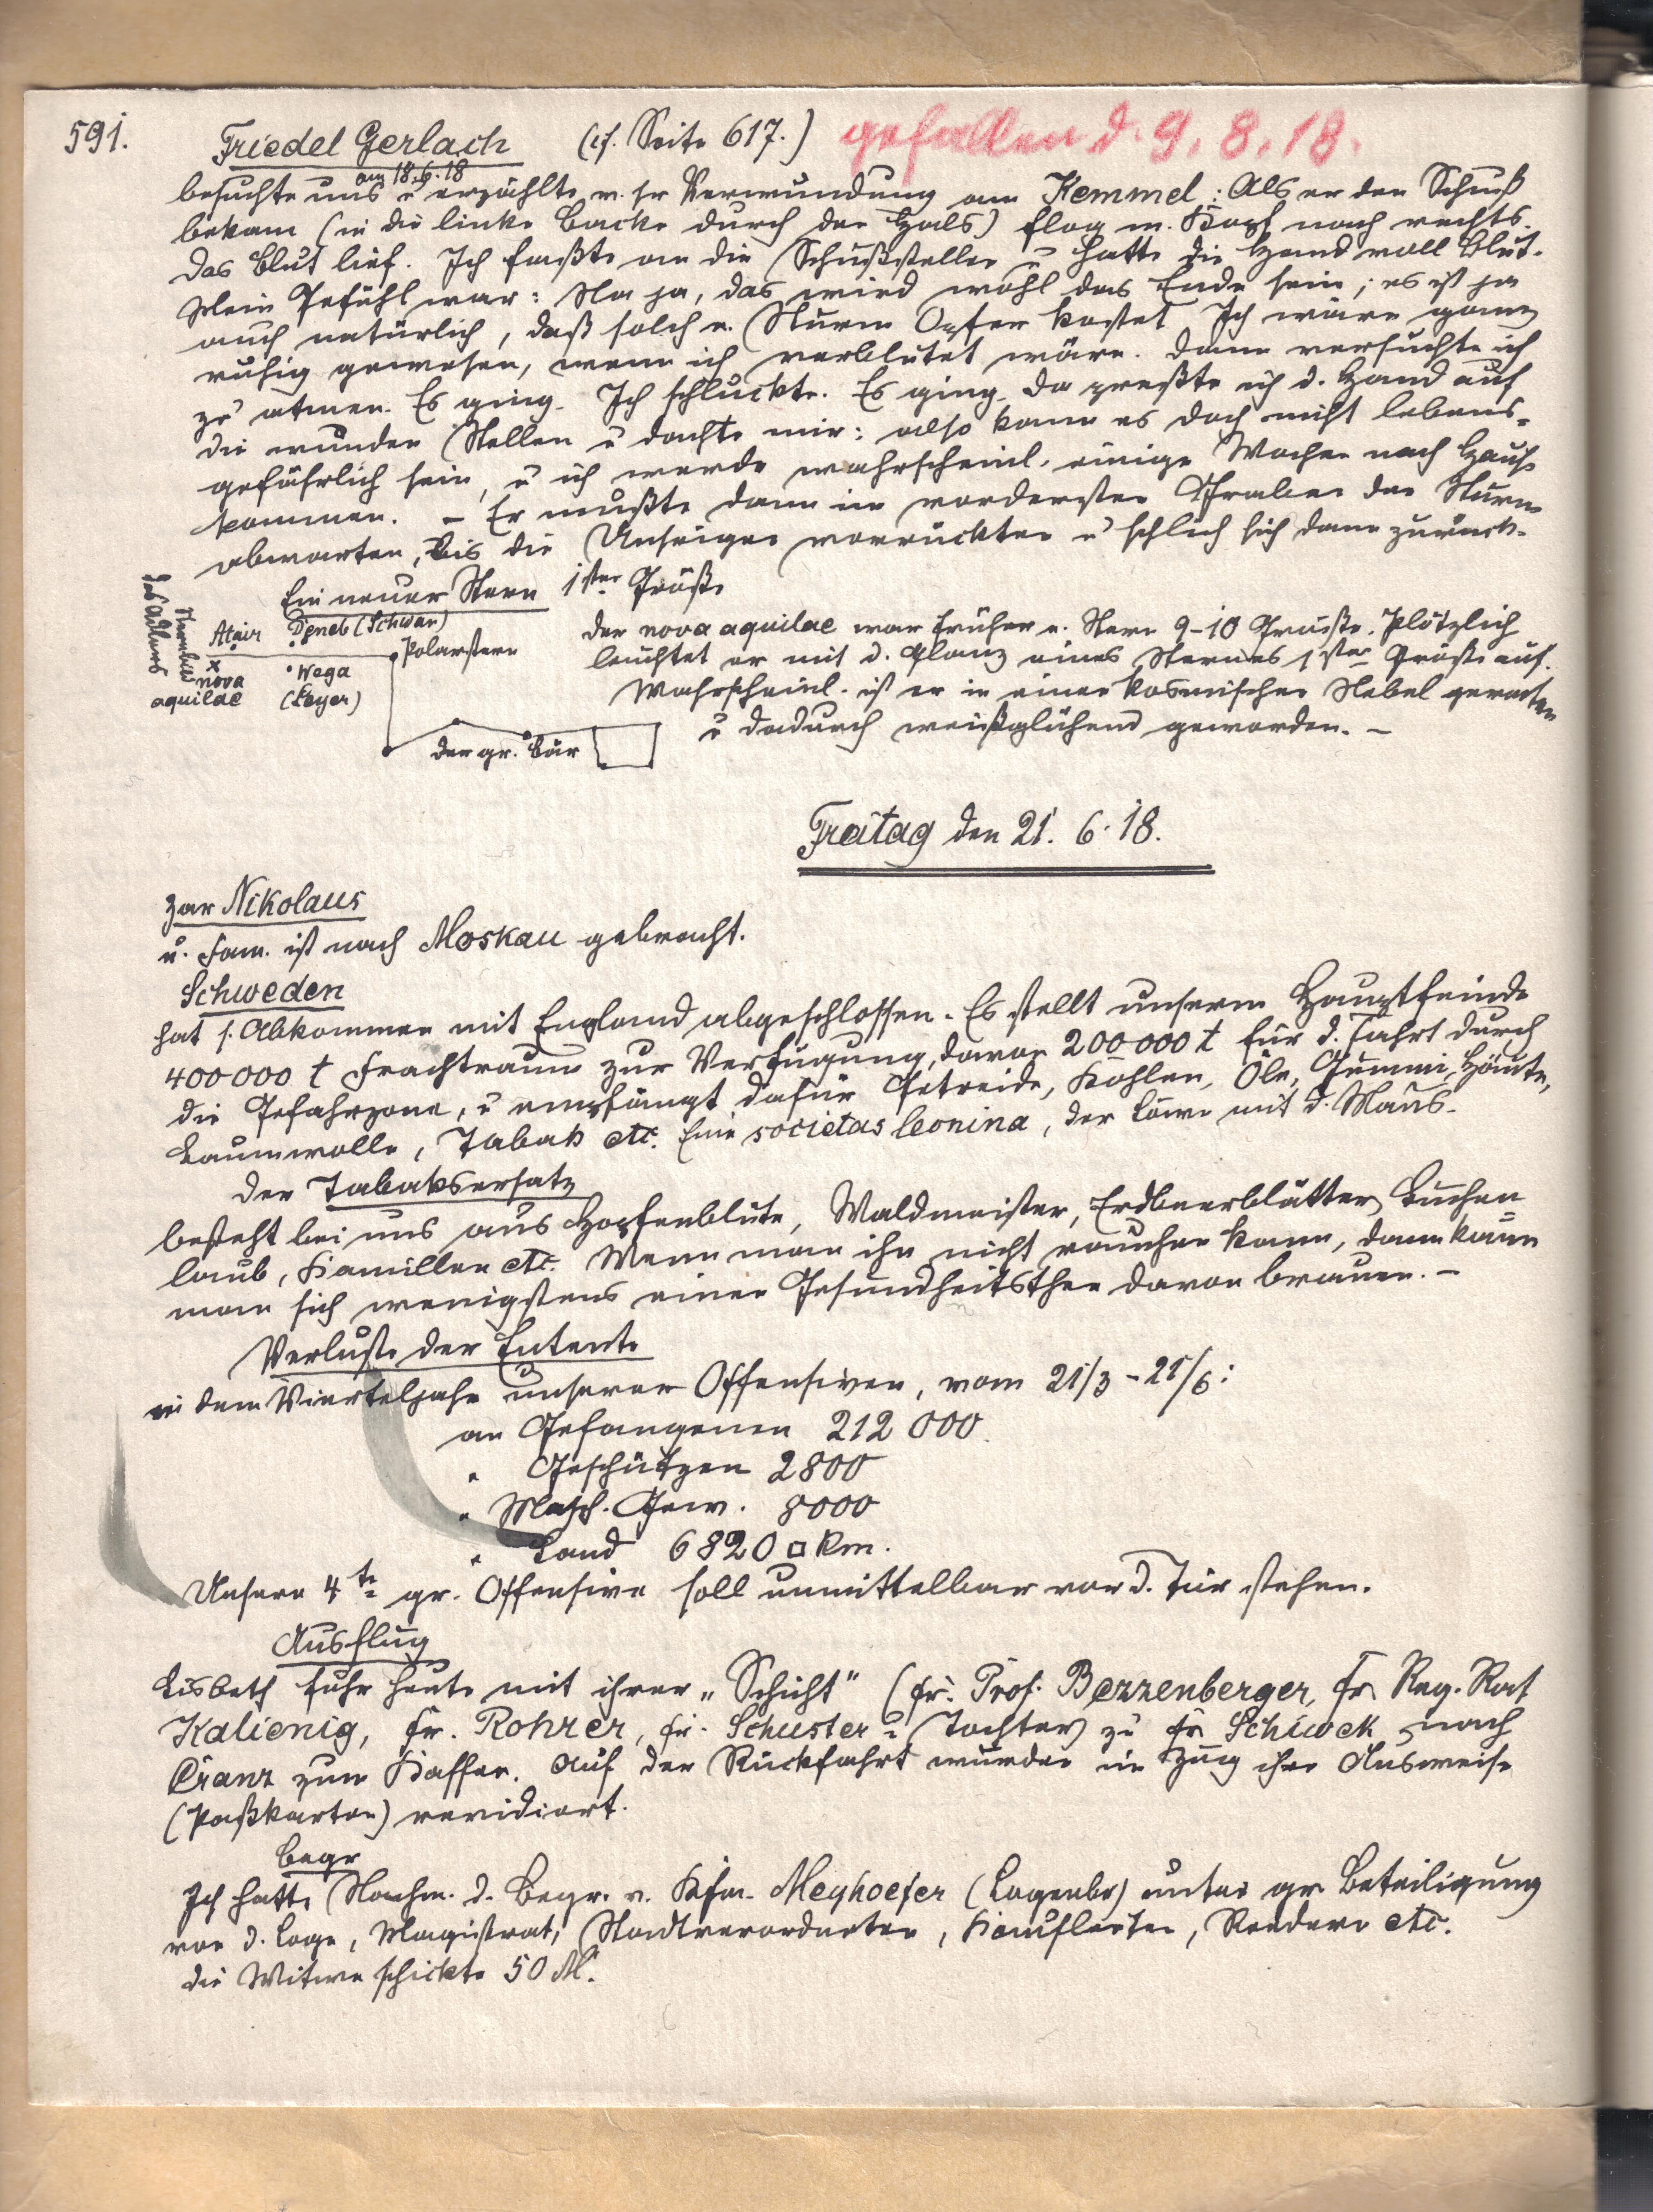 591.
Friedel Gerlach (cf. Seite 617.) gefallen d. 9. 8. 18.
am 18.6.18
besuchte uns u erzählte v. sr Verwundung am Kemmel: Als er den Schuß
bekam (in die linke Backe durch den Hals) flog m. Kopf nach rechts.
Das Blut lief. Ich faßte an die Schußstelle u hatte die Hand voll Blut.
Mein Gefühl war: Na ja, das wird wohl das Ende sein, es ist ja
auch natürlich, daß solch e. Sturm Opfer kostet. Ich wäre ganz
ruhig gewesen, wenn ich verblutet wäre. Dann versuchte ich
zu atmen. Es ging. Ich schluckte. Es ging. Da preßte ich d. Hand auf
die wunden Stellen u dachte mir: also kann es doch nicht lebens-
gefährlich sein, u ich werde wahrscheinl. einige Wochen nach Hause
kommen. – Er mußte dann im vordersten Graben den Sturm
abwarten, bis die Unsrigen vorrückten u schlich sich dann zurück.
Ein neuer Stern 1ster Größe
Der nova aquilae war früher e. Stern 9-10 Grösse. Plötzlich
leuchtet er mit d. Glanz eines Sternes 1ster Größe auf.
Wahrscheinl. ist er in einen kosmischen Nebel geraten
u dadurch weißglühend geworden. –
Sternbild
des Adlers
Atair Deneb (Schwan)
Polarstern
x nova
aquilae
Wega
(Leyer)
der gr. Bär
Freitag den 21. 6. 18.
Zar Nikolaus
u. Fam. ist nach Moskau gebracht.
Schweden
hat s. Abkommen mit England abgeschlossen. Es stellt unserm Hauptfeinde
400 000 t Frachtraum zur Verfügung, davon 200 000 t für d. Fahrt durch
die Gefahrzone, u empfängt dafür Getreide, Kohlen, Öle, Gummi, Häute,
Baumwolle, Tabak etc. Eine societas leonina, der Löwe mit d. Maus.
Der Tabaksersatz
besteht bei uns aus Hopfenblüte, Waldmeister, Erdbeerblätter, Buchen-
laub, Kamillen etc. Wenn man ihn nicht rauchen kann, dann kann
man sich wenigstens einen Gesundheitsthee davon brauen. –
Verluste der Entente
in dem Vierteljahr unserer Offensiven, vom 21/3 - 21/6:
an Gefangenen 212 000
" Geschützen 2800
" Masch. Gew. 8000
" Land 6820 □ km.
Unsere 4te gr. Offensive soll unmittelbar vor d. Tür stehen.
Ausflug
Lisbeth fuhr heute mit ihrer „Schicht" (Fr. Prof. Bezzenberger, Fr Reg. Rat
Kalienig, Fr. Rohrer, Fr. Schuster u Tochter) zu Fr Schiwek nach
Cranz zum Kaffee. Auf der Rückfahrt wurden im Zug ihre Ausweise
(Paßkarten) revidiert.
Begr
Ich hatte Nachm. d. Begr. v. Kfm. Meyhoefer (Logenbr) unter gr. Beteiligung
von d. Loge, Magistrat, Stadtverordneten, Kaufleuten, Reedern etc.
Die Witwe schickte 50 M.